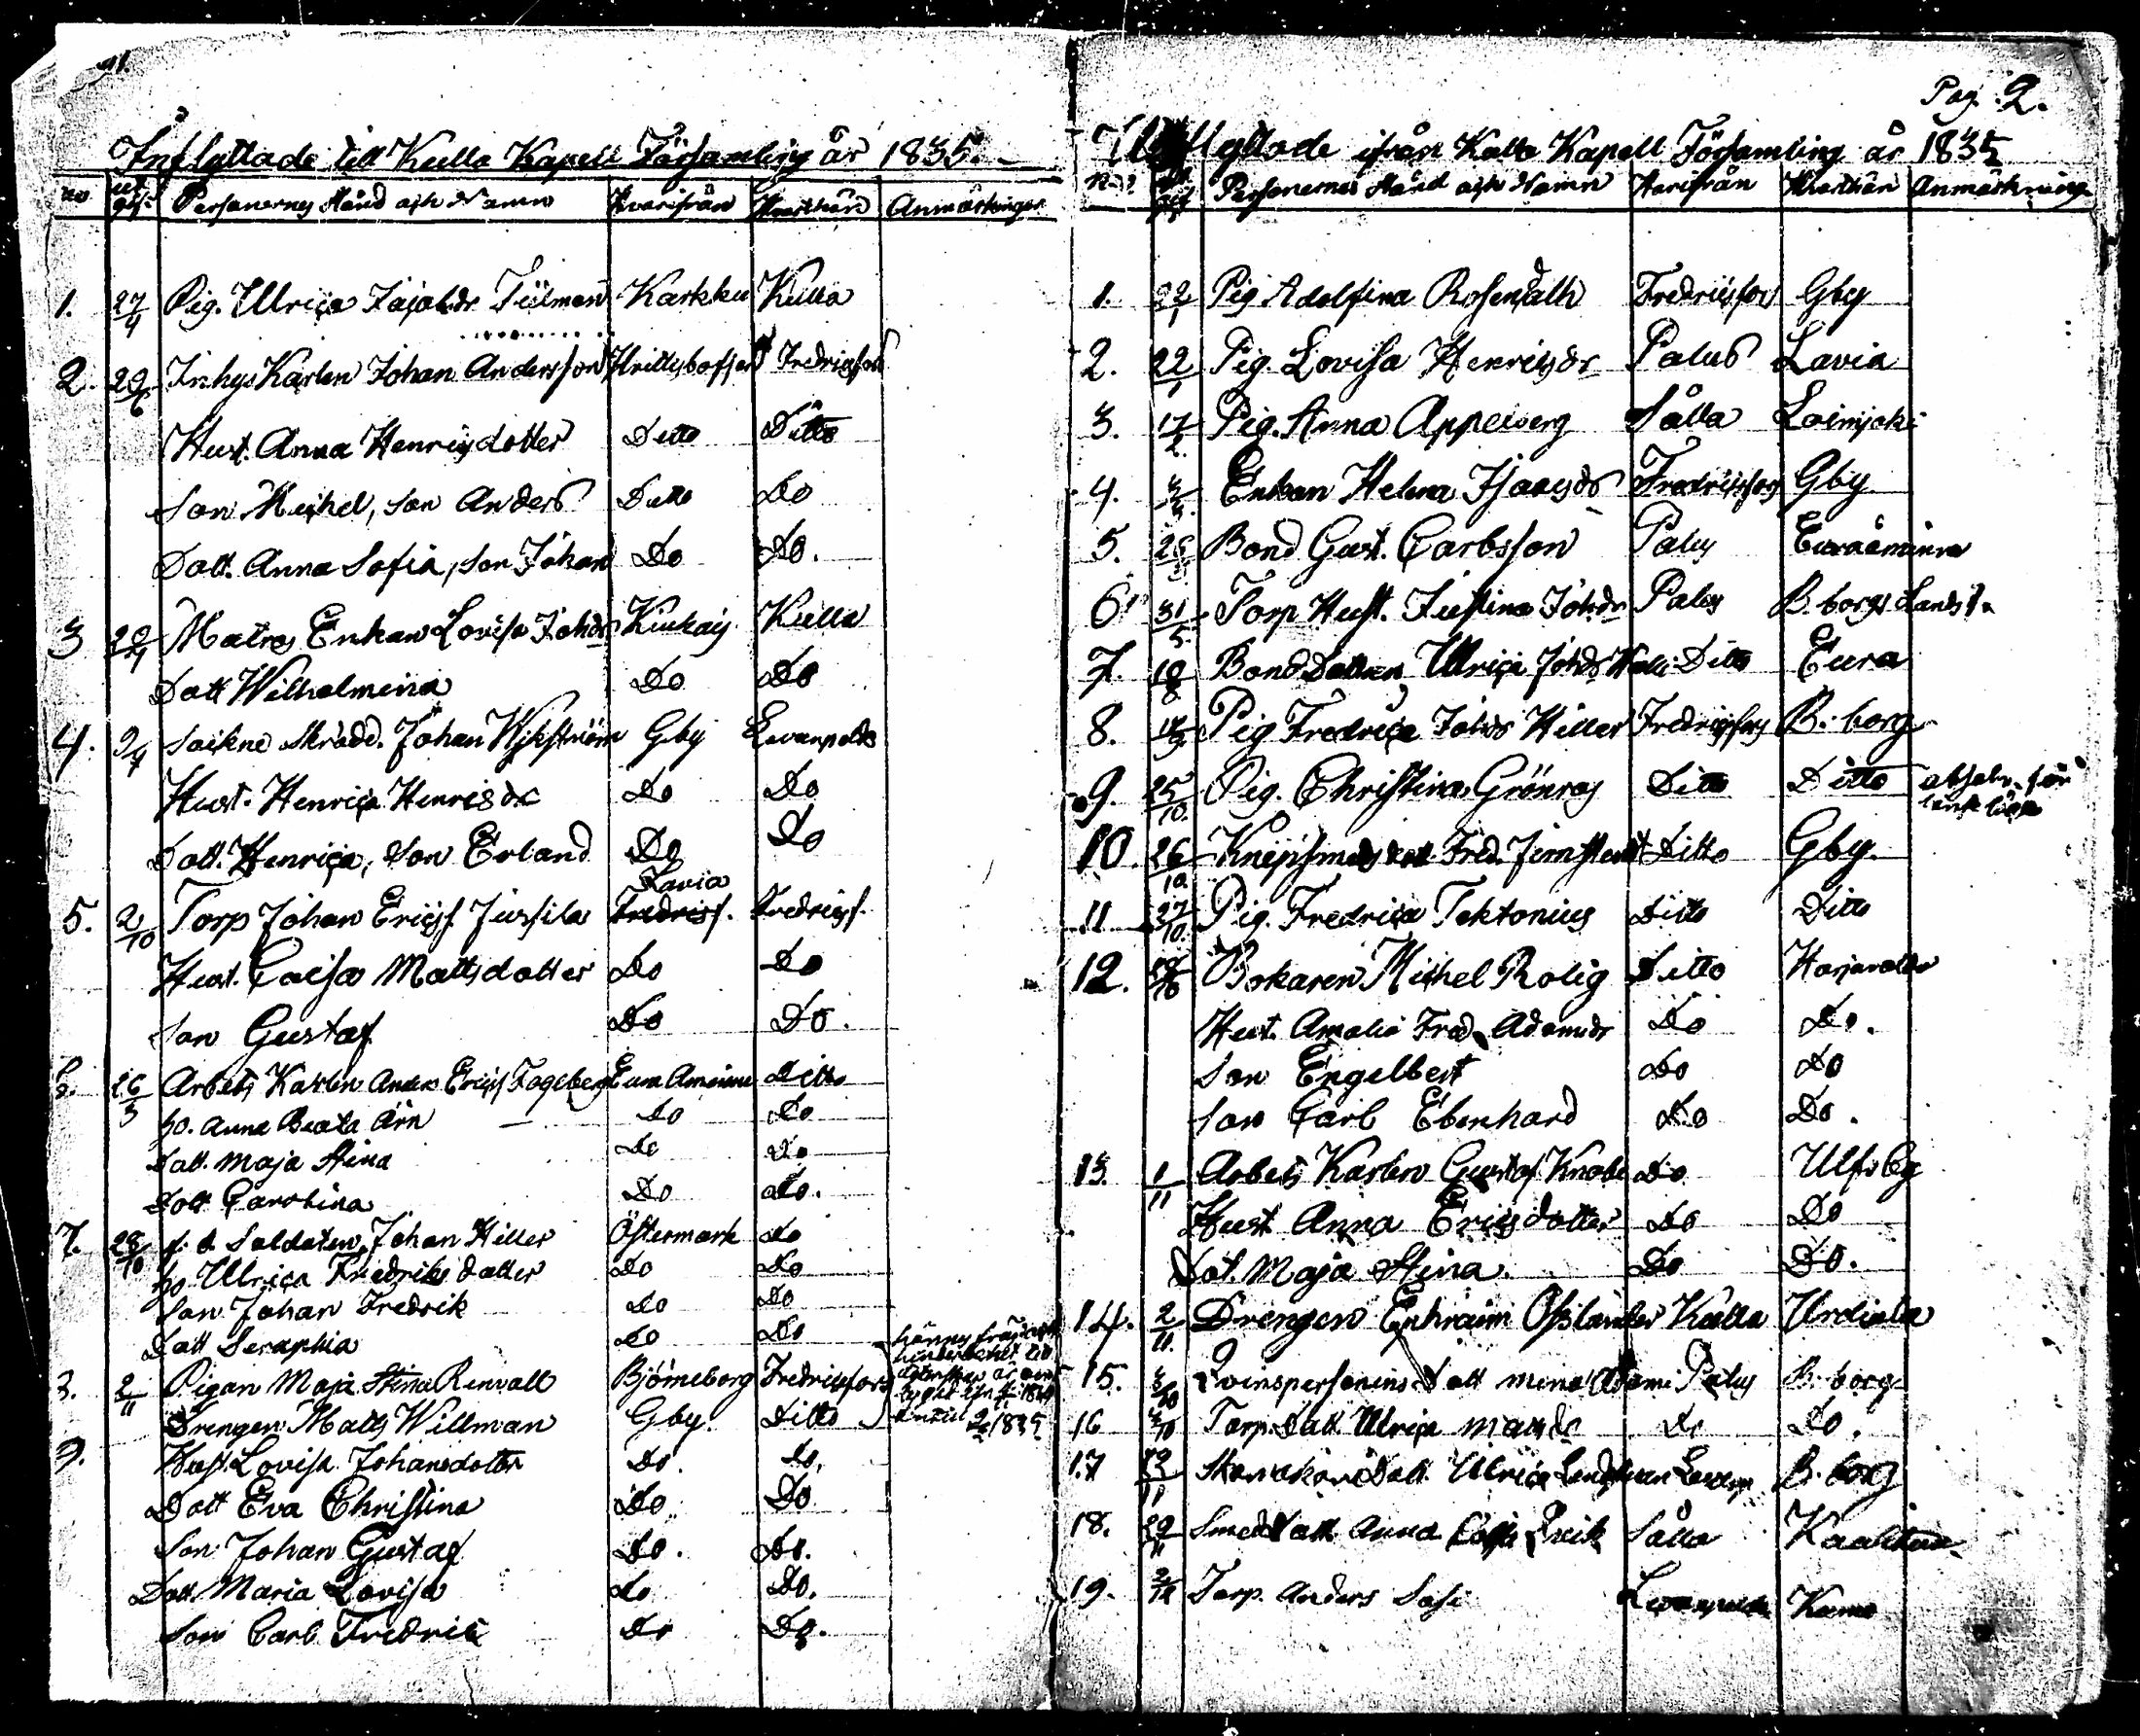 Inflyttade till Kulla Kapell Församling år 1835.
no Personernes Stånd och Namn Hvarifrån Hvarthän Anmärkningar
1. 27/4 Pig. Ulrica Jacobsdr Karkku Kulla
2. 29/6 Inhys Karlen Johan Andersson Fredricsfors
Hust. Anna Henricsdotter Ditto Ditto
Son Michel, son Anders Ditto Do
Dott. Anna Sofia, son Johan Do Do.
3 Enkan Lovisa Johdr Kulla
Dott Wilhelmina Do Do
4. 9/4 Sockne Skrädd. Johan Wikström Gby Levanpelto
Hust. Henrica Henricsdr Do Do
Dott. Henrica, Son Erland Do Do
Lavia
5. 2/10 Torp Johan Ericss. Jussila Fredricsf. Fredricsf.
Hust. Caisa Mattsdotter Do Do
Son Gustaf Do Do.
6. 26/3 Arbets Karlen Anders Ericss Fogelberg Eura Åminne Ditto
ho. Anna Beata Örn Do Do
Dott. Maja Stina Do Do
Dott Carolina Do Do.
7. 28/10 f. d. Soldaten Johan Hiller Östermark Do
ho. Ulrica Fredriks dotter Do Do
Son Johan Fredrik Do Do
Dott Seraphia Do Do
8. 2/11 Pigan Maja Stina Renvall Björneborg Fredricsfors
Drengen Matts Willman Gby. Ditto
9. Hust. Lovisa Johansdotter Do. Do.
Dott Eva Christina Do Do
Son Johan Gustaf Do. Do.
Dott Maria Lovisa Do Do.
Son Carl Fredric Do Do.
Pag. 2.
Utflyttade ifrån Kulla Kapell Församling år 1835
No Personernes Stånd och Namn Harifrån Hvarthän Anmärkning
1. 22/1 Pig Adolfina Rosendahl Fredricsfors Gby
2. 22/1 Pig. Lovisa Henricsdr Palus Lavia
3. 17/2 Pig. Anna Appelberg Sålla Loimjoki
4. Enkan Helena Isaacsdr Fredricsfors Gby
5. Bond Gust. Carlsson Palus Euraåminne
6. 31/5. Torp Hust. Justina Johdr Palus B. borgs Lands f.
7. Bond Dottren Ulrica Johdr Ditto Eura
8. Pig Fredrica Johdr Hiller Fredricsfors B. borg
9. 25/10. Pig. Christina Grönroos Ditto Ditto absolv. för
10 26/10. Knipsmeds dott. Fred. Ditto Gby.
11 27/10. Pig. Fredrica Tektonius Ditto Ditto
12. Bokaren Michel Rolig Ditto Harjavalta
Hust. Amalia Fred. Adamsdr Do Do.
Son Engelbert Do Do
Son Carl Ebenhard Do Do.
13. 1/11 Arbets Karlen Gustaf Knabe Do Ulfsby
Hust Anna Ericsdotter Do Do
Dot. Maja Stina. Do Do.
14. 2/11. Drengen Ephraim Östlander Kulla Urdiala
15. dott Mina Palus B. borg
16 Torp. Dott Ulrica Do Do.
17 Dott. Ulrica B. borg
18. Smed dott Anna Sålla
19. Torp. Anders Sasi Kumo